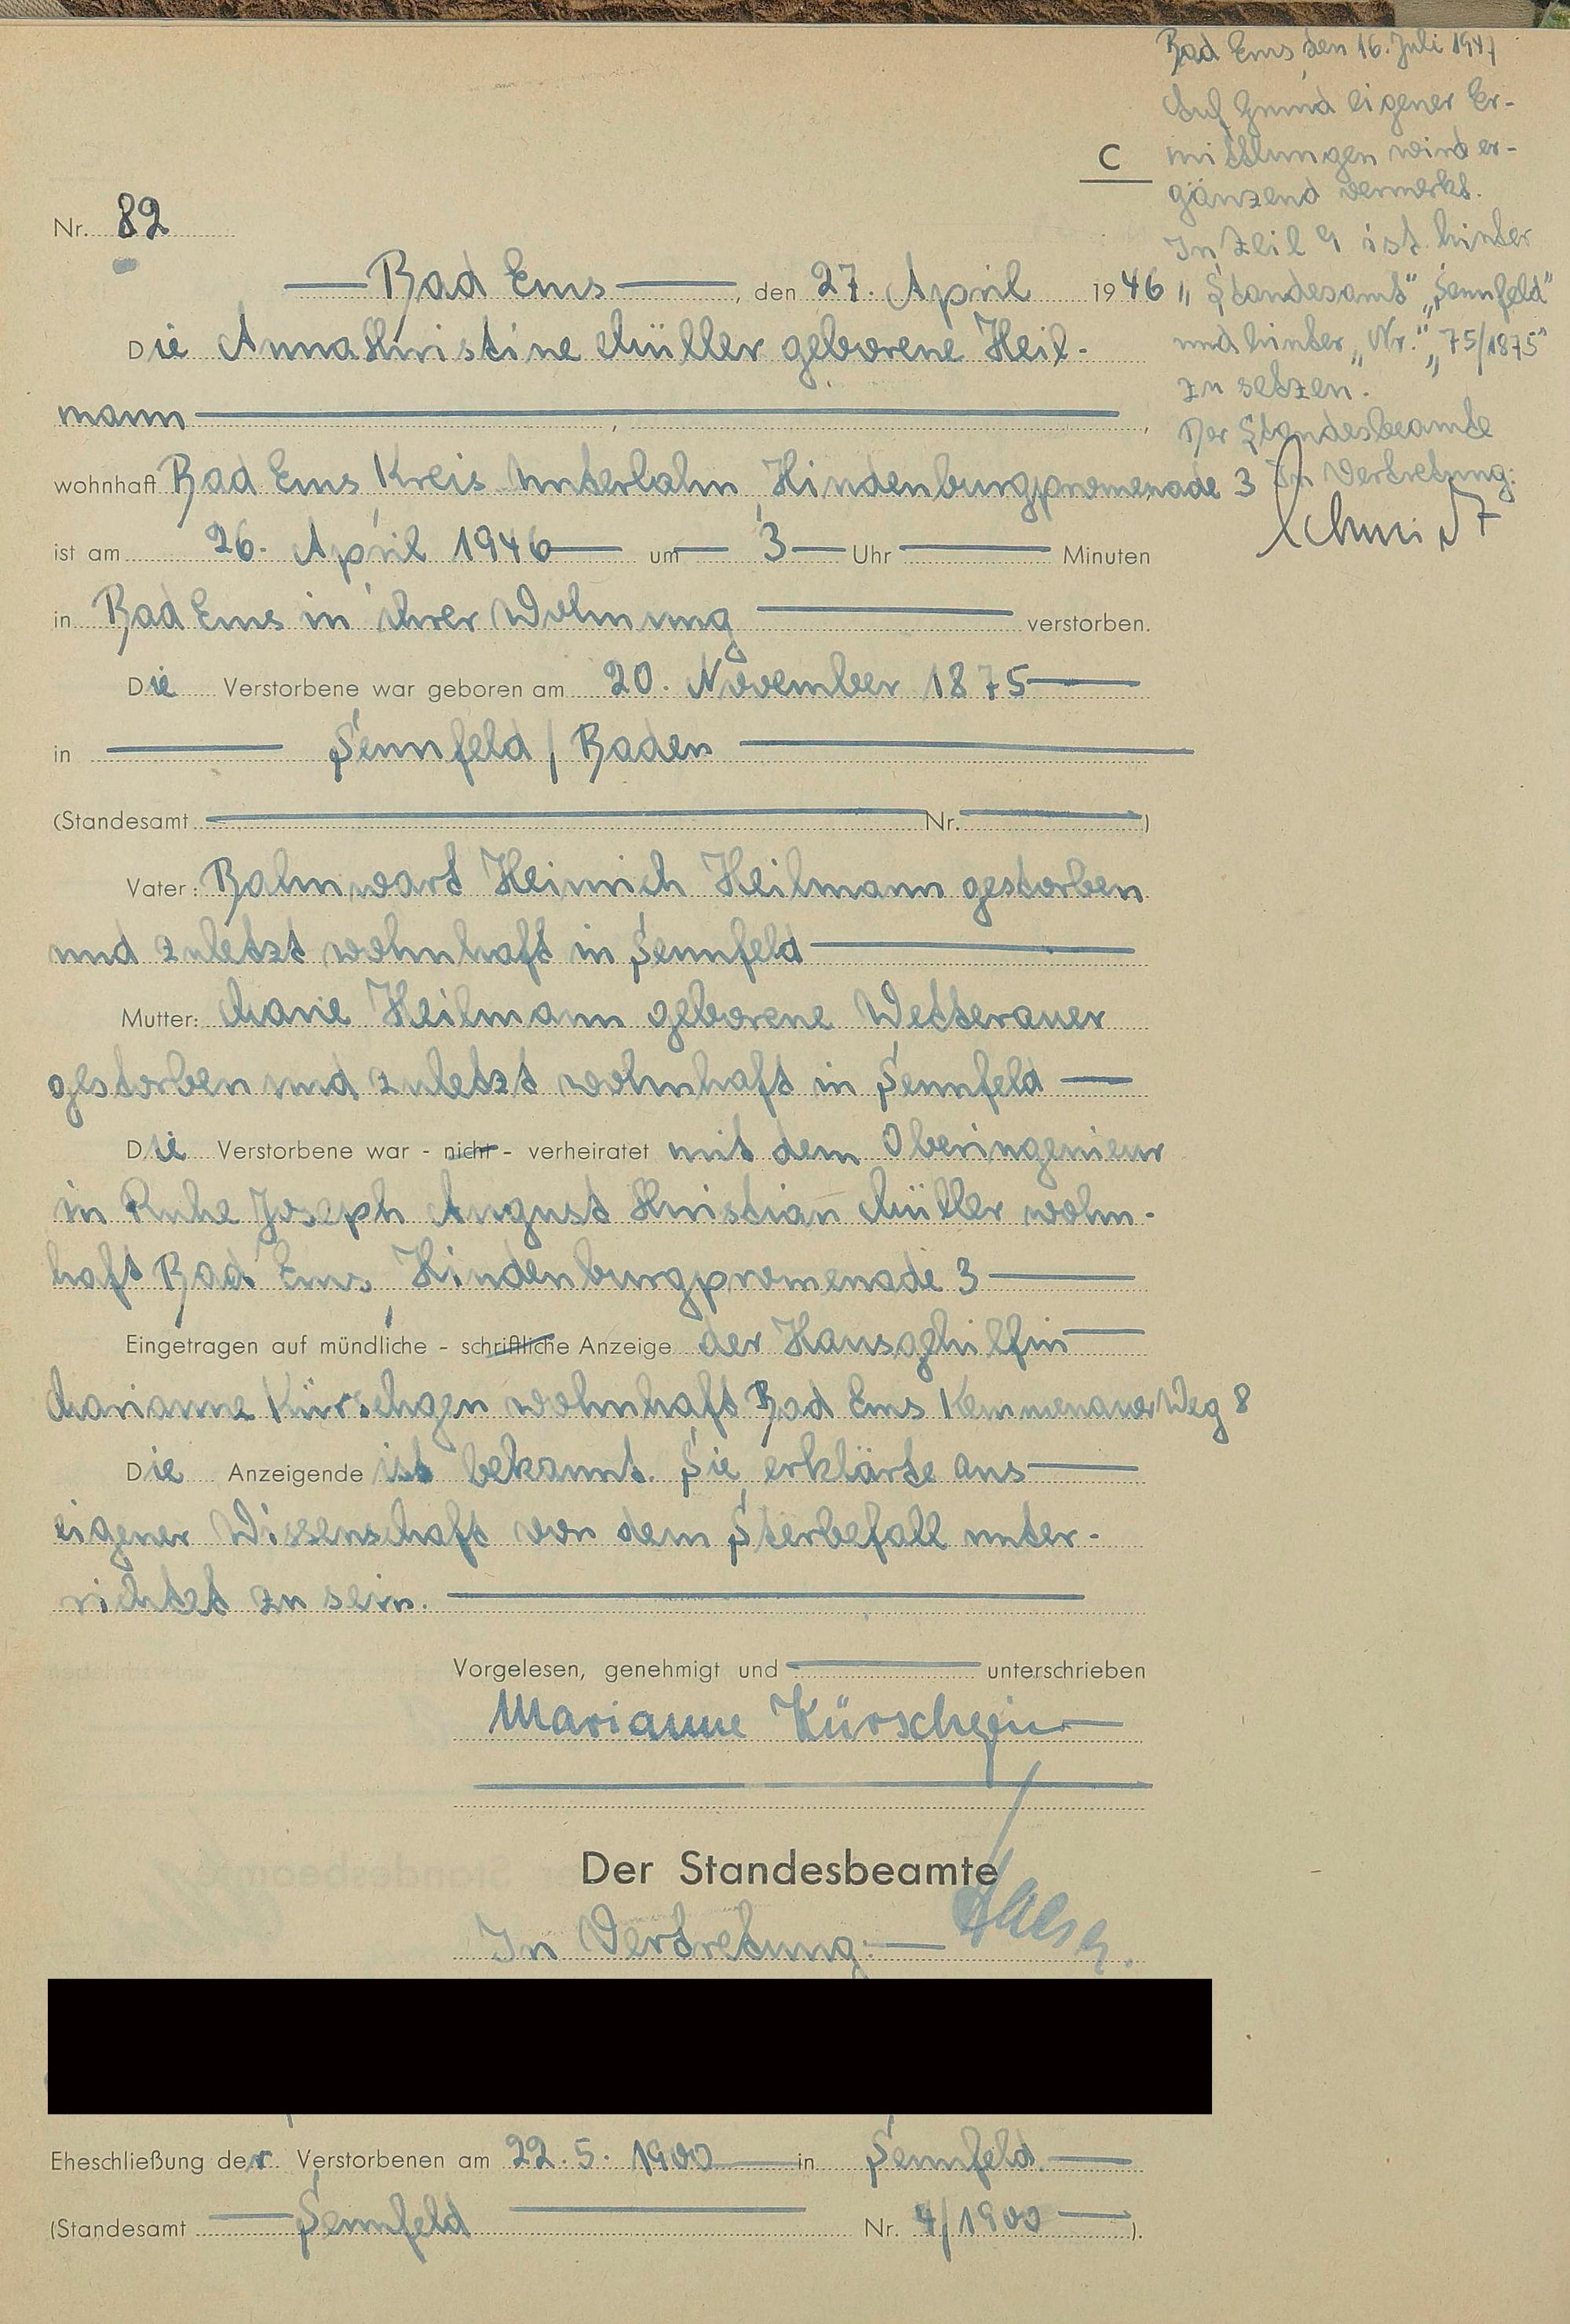 Bad Ems, den 16. Juli 1947
Auf Grund eigener Er-
mittlungen wird er-
gänzend vermerkt.
In Zeile 9 ist hinter
"Standesamt" "Sennfeld"
und hinter "Nr." "75/1875"
zu setzen".
Der Standesbeamte
In Vertretung:
Schmidt
C
Nr. 82
Bad Ems, den 27. April 1946
Die Anna Christine Müller geborene Heil-
mann
wohnhaft Bad Ems, Kreis Unterlahn, Hindenburgpromenade 3
ist am 26. April 1946 um 3 Uhr Minuten
in Bad Ems in ihrer Wohnung verstorben.
Die Verstorbene war geboren am 20. November 1875
in Sennfeld / Baden
(Standesamt Nr. )
Vater: Bahnwart Heinrich Heilmann gestorben
und zuletzt wohnhaft in Sennfeld
Mutter: Marie Heilmann geborene Wetterauer
gestorben und zuletzt wohnhaft in Sennfeld
Die Verstorbene war - nicht - verheiratet mit dem Oberingenieur
in Ruhe Joseph August Christian Müller wohn-
haft Bad Ems, Hindenburgpromenade 3
Eingetragen auf mündliche - schriftliche Anzeige der Hausgehilfin
Marianne wohnhaft Bad Ems Kemmenauer Weg 8
Die Anzeigende ist bekannt. Sie erklärte aus
eigener Wissenschaft von dem Sterbefall unter-
richtet zu sein.
Vorgelesen, genehmigt und unterschrieben
Marianne
Der Standesbeamte
In Vertretung:
Eheschließung der Verstorbenen am 22.5.1900 in Sennfeld.
(Standesamt Sennfeld Nr. 4/1900 ).